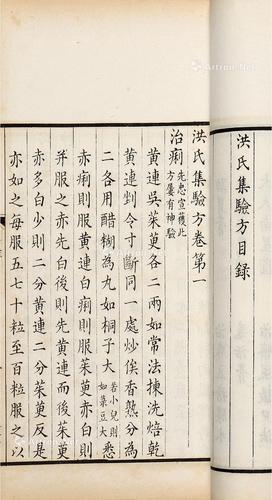 洪氏集驗方目錄
洪氏集驗方卷第一
治痢先忠宣獲此方屢有神驗
黃連吳茱萸各二兩如常法揀洗焙乾
黃連剉令寸斷同一處炒俟香熟分為
二各用醋糊為丸如桐子大若小兒則如菉豆大悉
赤痢則服黃連白則服茱萸赤白則
并服之赤先白後則先黃連而後茱萸
赤多白少則二分黃連二分茱萸反是
亦如之每服五七十粒至百粒服之以